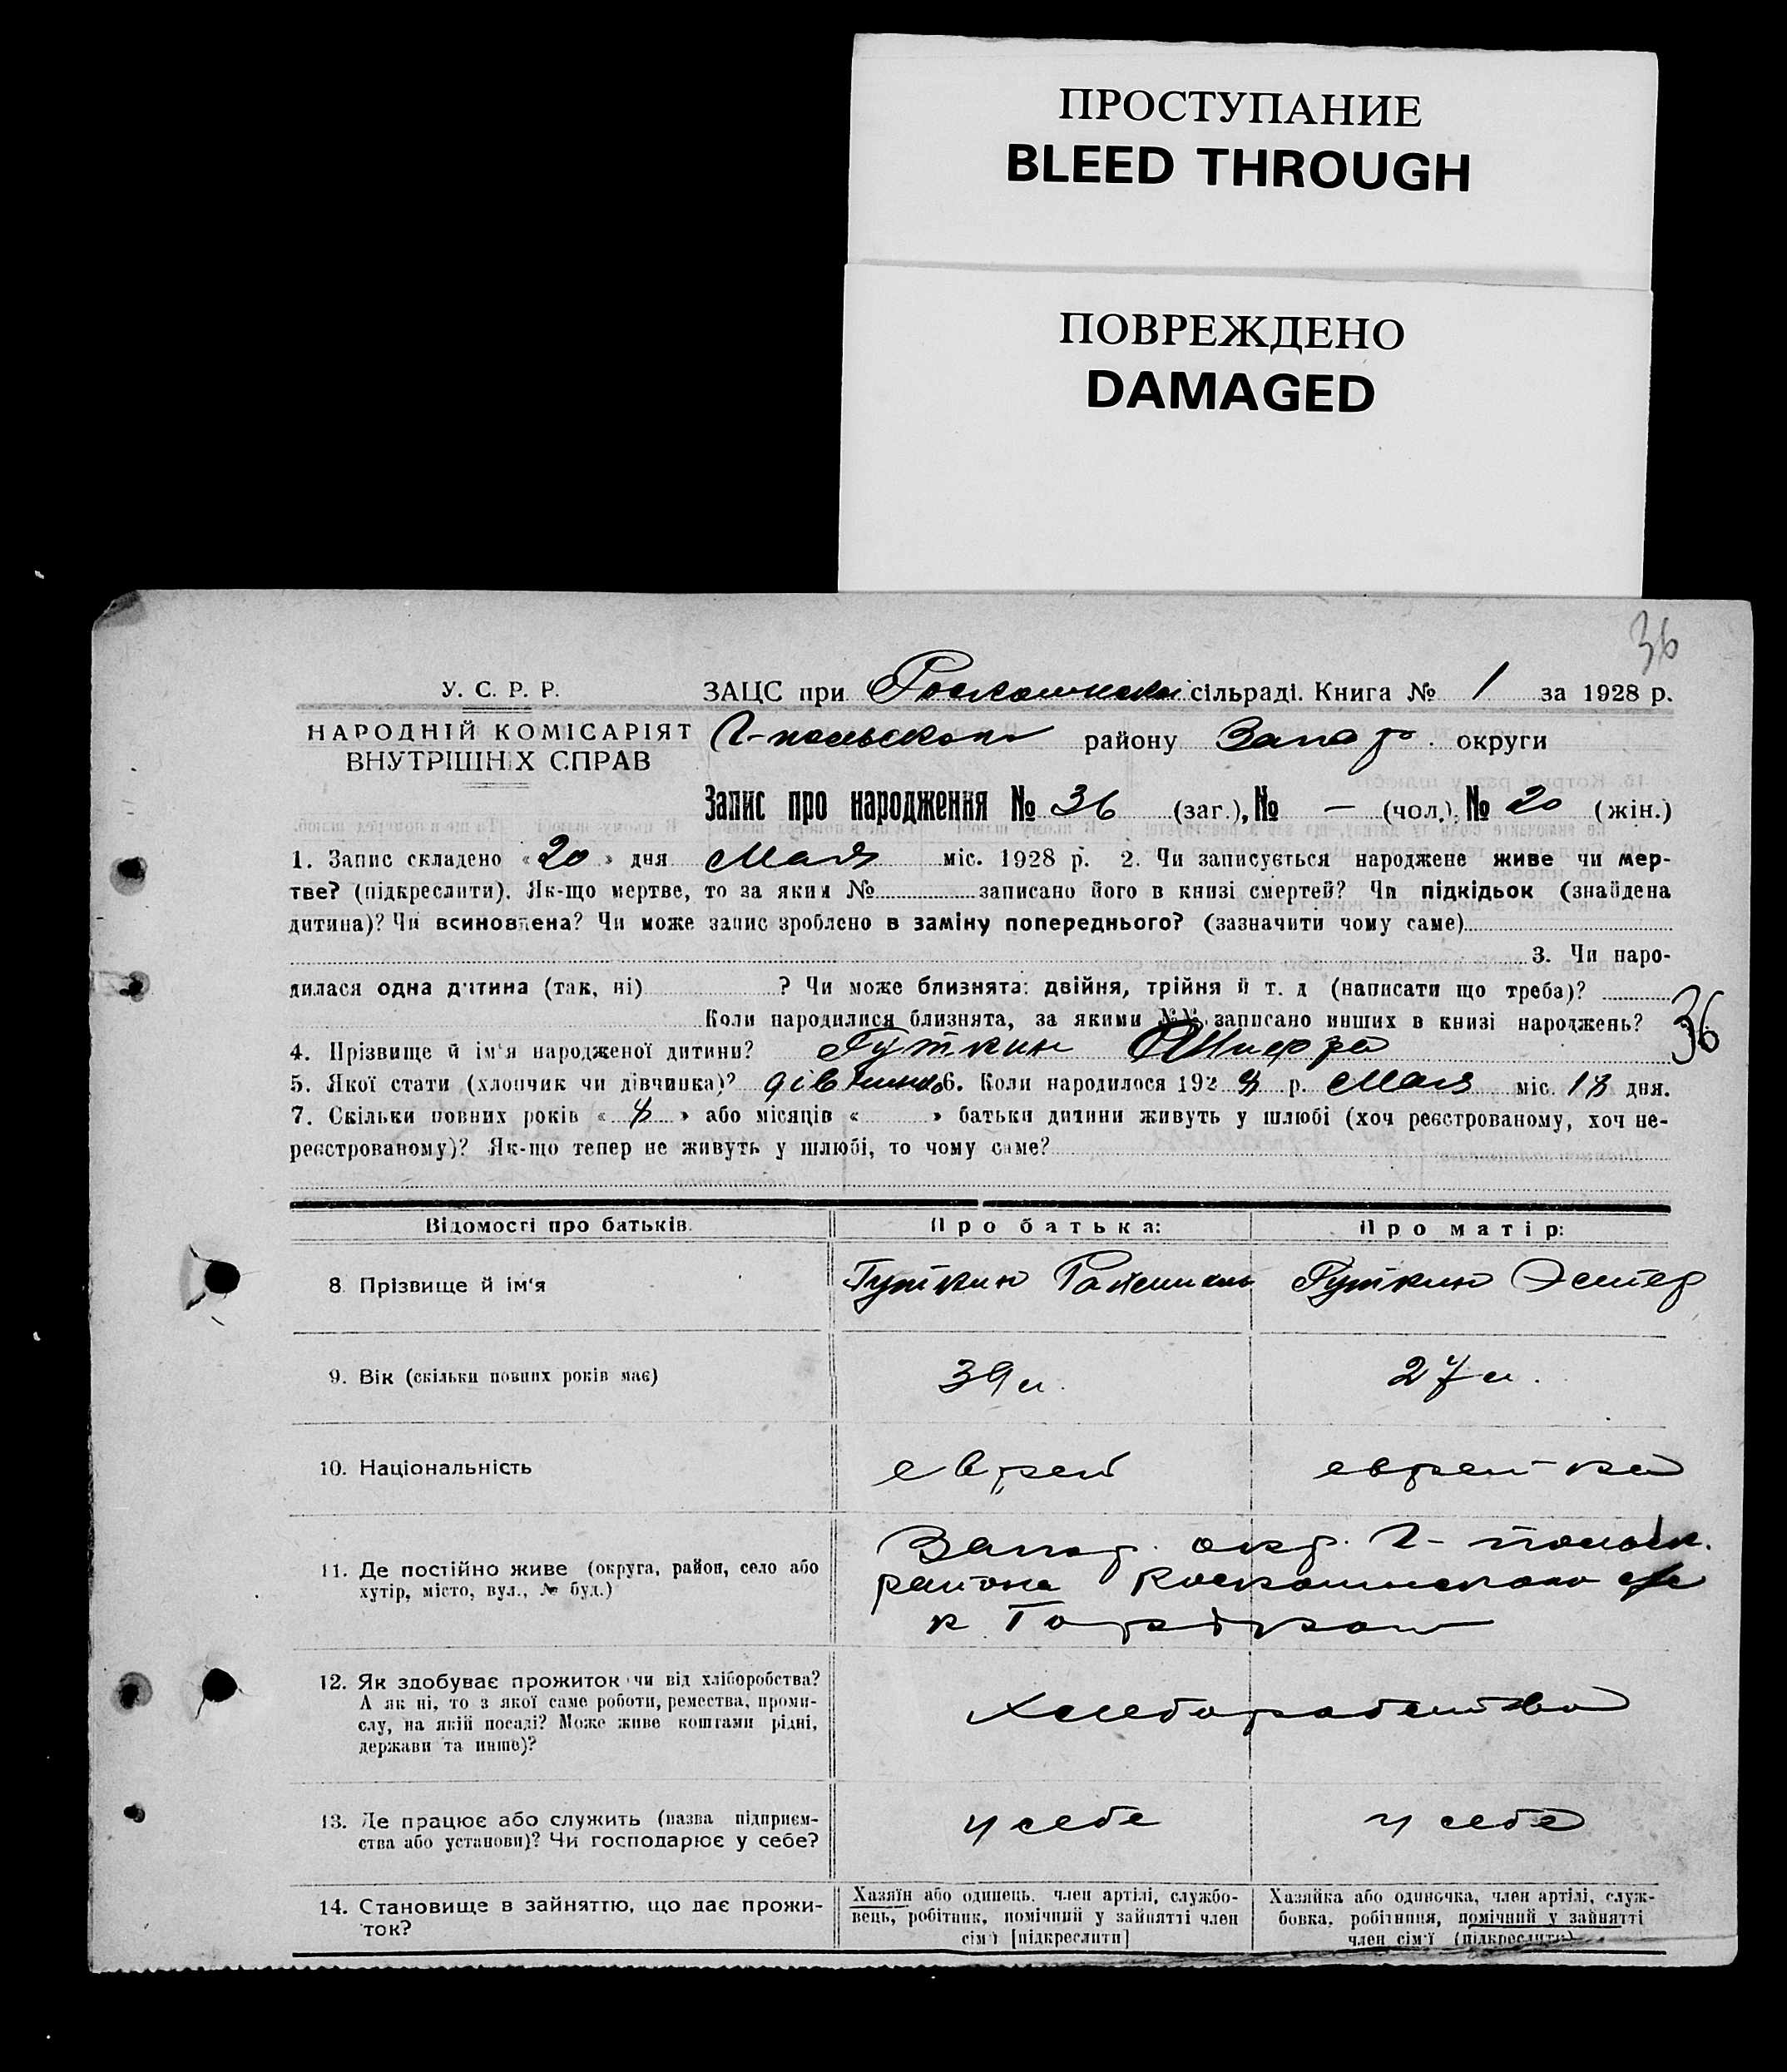 ПРОСТУПАНИЕ
BLEED THROUGH
ПОВРЕЖДЕНО
DAMAGED
36
У. С. Р. Р.
НАРОДНІЙ КОМІСАРІЯТ
ВНУТРІШНІХ СПРАВ
ЗАЦС при сільраді. Книга № 1 за 1928 р.
району Запор. округи
Запис про народження № 36 (заг.), № — (чол.), № 20 (жін.)
1. Запис складено «20» дня Мая міс. 1928 р. 2. Чи записується народжене живе чи мер-
тве? (підкреслити). Як-що мертве, то за яким № записано його в книзі смертей? Чи підкідьок (знайдена
дитина)? Чи всиновлена? Чи може запис зроблено в заміну попереднього? (зазначити чому саме)
3. Чи наро-
дилася одна дитина (так, ні) ? Чи може близнята: двійня, трійня й т. д (написати що треба)?
Коли народилися близнята, за якими №№ записано инших в книзі народжень?
36
4. Прізвище й ім'я народженої дитини? Гуткин Шифра
5. Якої стати (хлопчик чи дівчинка)? дівчинка 6. Коли народилося 1928 р. Мая міс. 18 дня.
7. Скільки повних років «8» або місяців « » батьки дитини живуть у шлюбі (хоч реєстрованому, хоч не-
реєстрованому)? Як-що тепер не живуть у шлюбі, то чому саме?
Відомості про батьків. Про батька: Про матір:
8. Прізвище й ім'я Гуткин Гуткин Эстер
9. Вік (скільки повних років має) 39 л. 27 л.
10. Національність еврей еврейка
11. Де постійно живе (округа, район, село або
хутір, місто, вул., № буд.)
Запор. окр. Г-польск.
района Роскошнского с/с
к.
12. Як здобуває прожиток чи від хліборобства?
А як ні, то з якої саме роботи, ремества, проми-
слу, на якій посаді? Може живе коштами рідні,
держави та инше)?
хлеборобство
13. Де працює або служить (назва підприєм-
ства або установи)? Чи господарює у себе?
у себе у себе
14. Становище в зайняттю, що дає прожи-
ток?
Хазяїн або одинець, член артілі, службо-
вець, робітник, помічний у зайнятті член
сім'ї [підкреслити]
Хазяйка або одиночка, член артілі, служ-
бовка, робітниця, помічний у зайнятті
член сім'ї (підкреслити)